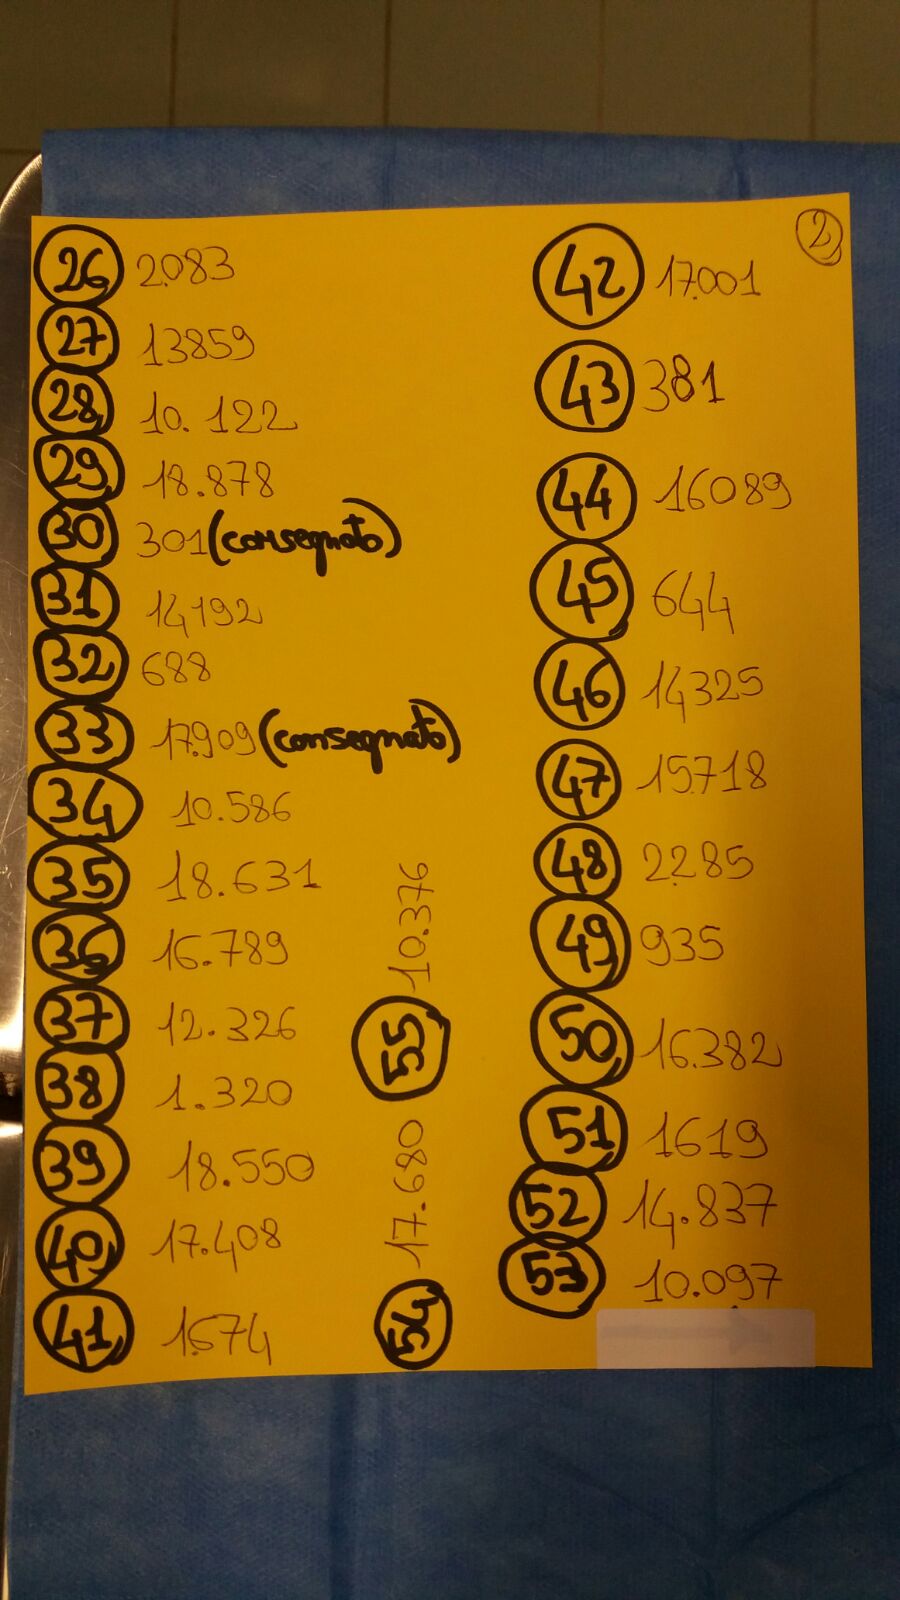 2
26 2083
27 13859
28 10.122
29 18.878
30 301 (consegnato)
31 14192
32 688
33 17.909 (consegnato)
34 10.586
35 18.631
36 16.789
37 12.326
38 1.320
39 18.550
40 17.408
41 1.574
42 17.001
43 381
44 16089
45 644
46 14325
47 15.718
48 2.285
49 935
50 16.382
51 1619
52 14.837
53 10.097
54 17.680
55 10.376